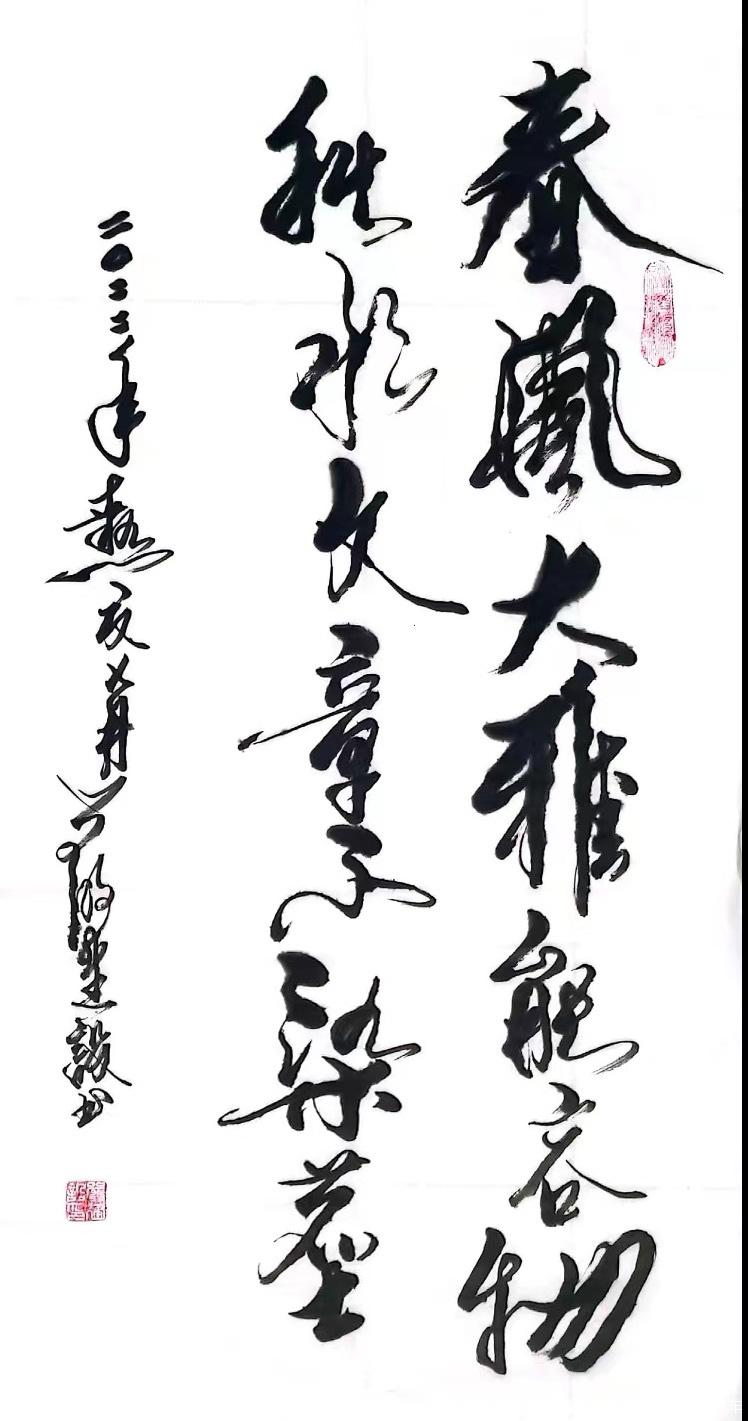 春風大雅能容物
秋水文章不染塵
二〇二二年 書